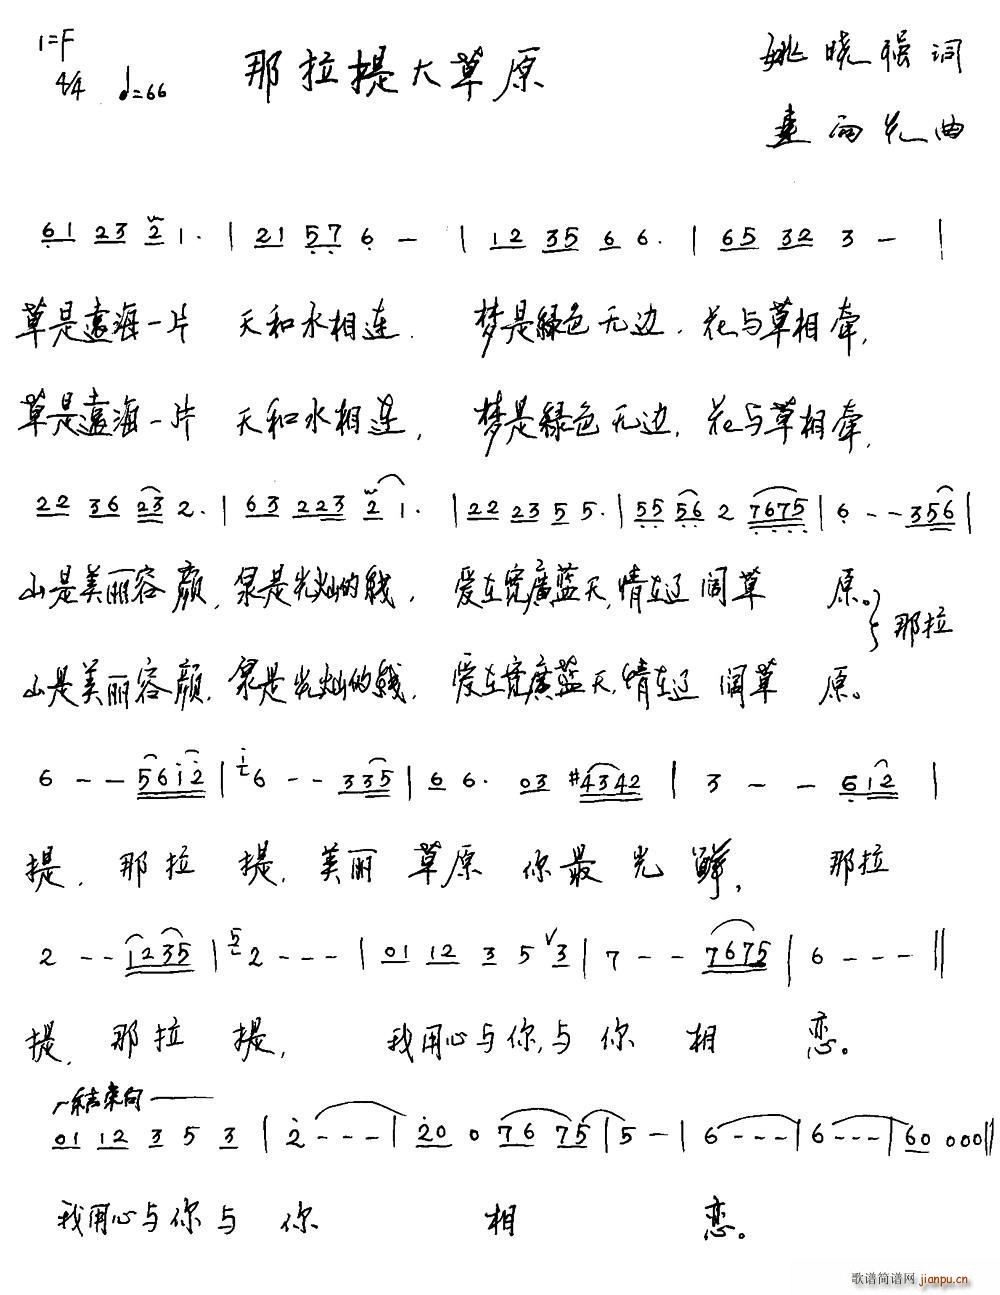 1=F
4/4 ♩=66
那拉提大草原
姚晓强 词
雨光 曲
6 1 2 3 2 1 · | 2 1 5 7 6 — | 1 2 3 5 6 6 · | 6 5 3 2 3 — |
草是遠海一片 天和水相连. 梦是绿色无边. 花与草相牵,
草是遠海一片 天和水相连, 梦是绿色无边, 花与草相牵,
2 2 3 6 2 3 2 · | 6 3 2 2 3 2 1 · | 2 2 2 3 5 5 · | 5 5 5 6 2 7 6 7 5 | 6 - - 3 5 6 |
山是美丽容颜, 泉是光灿的线, 爱在宽廣蓝天, 情在辽阔草原。} 那拉
山是美丽容颜, 泉是光灿的线, 爱在宽廣蓝天, 情在辽阔草原。
6 - - 5 6 i 2 | i 6 - - 3 3 5 | 6 6 · 0 3 #4 3 4 2 | 3 - - 6 1 2 |
提, 那拉提, 美丽草原你最光鲜, 那拉
2 - - 1 2 3 5 | 5 2 - - - | 0 1 1 2 3 5 ∨ 3 | 7 - - 7 6 7 5 | 6 - - - ‖
提, 那拉提, 我用心与你,与你相恋。
结束句
0 1 1 2 3 5 3 | 2 - - - | 2 0 0 7 6 7 5 | 5 - | 6 - - - | 6 - - - | 6 0 0 0 0 ‖
我用心与你与你相恋。
歌谱简谱网 jianpu.cn